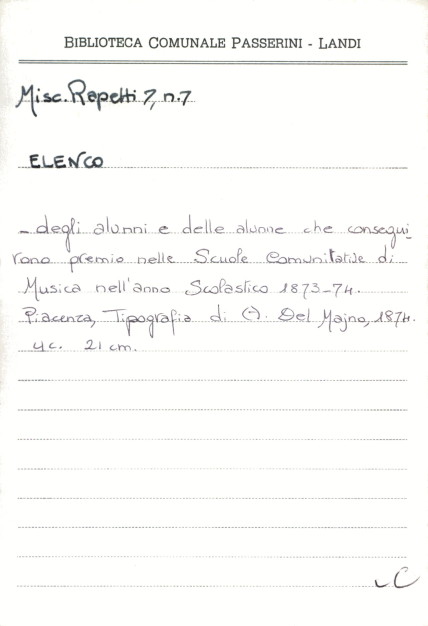 BIBLIOTECA COMUNALE PASSERINI - LANDI
Misc. Rapetti 7, n.7
ELENCO
- degli alunni e delle alunne che consegui_
rono premio nelle Scuole Comunitative di
Musica nell'anno Scolastico 1873-74.
Piacenza, Tipografia di A. Del Majno, 1874.
4c. 21 cm.